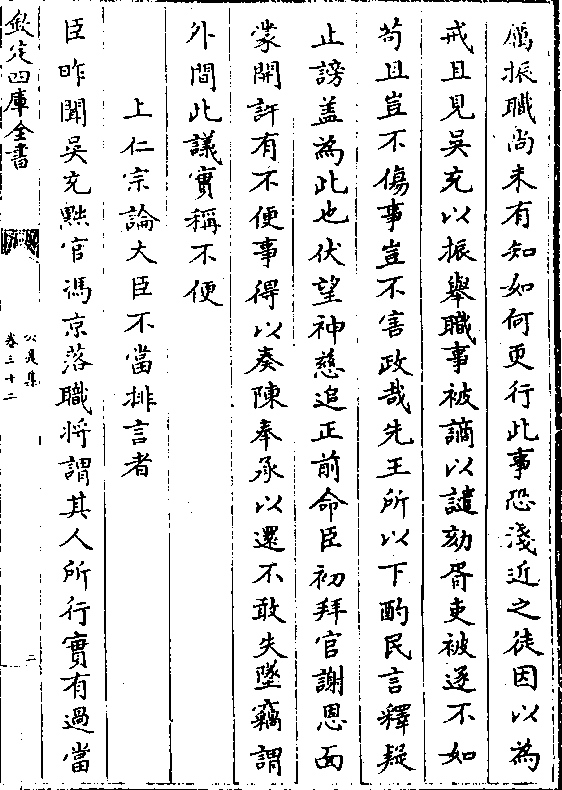 厲振職尚未有知如何更行此事恐淺近之徒因以為
戒且見吳充以振舉職事被謫以譴劾胥吏被逐不如
苟且豈不傷事豈不害政哉先王所以下酌民言釋疑
止謗盖為此也伏望神慈追正前命臣初拜官謝恩面
蒙開許有不便事得以奏陳奉承以還不敢失墜竊謂
外間此議實稱不便
上仁宗論大臣不當排言者
臣昨聞吳充黜官馮京落職將謂其人所行實有過當
欽定四庫全書
公是集
卷三十二
二